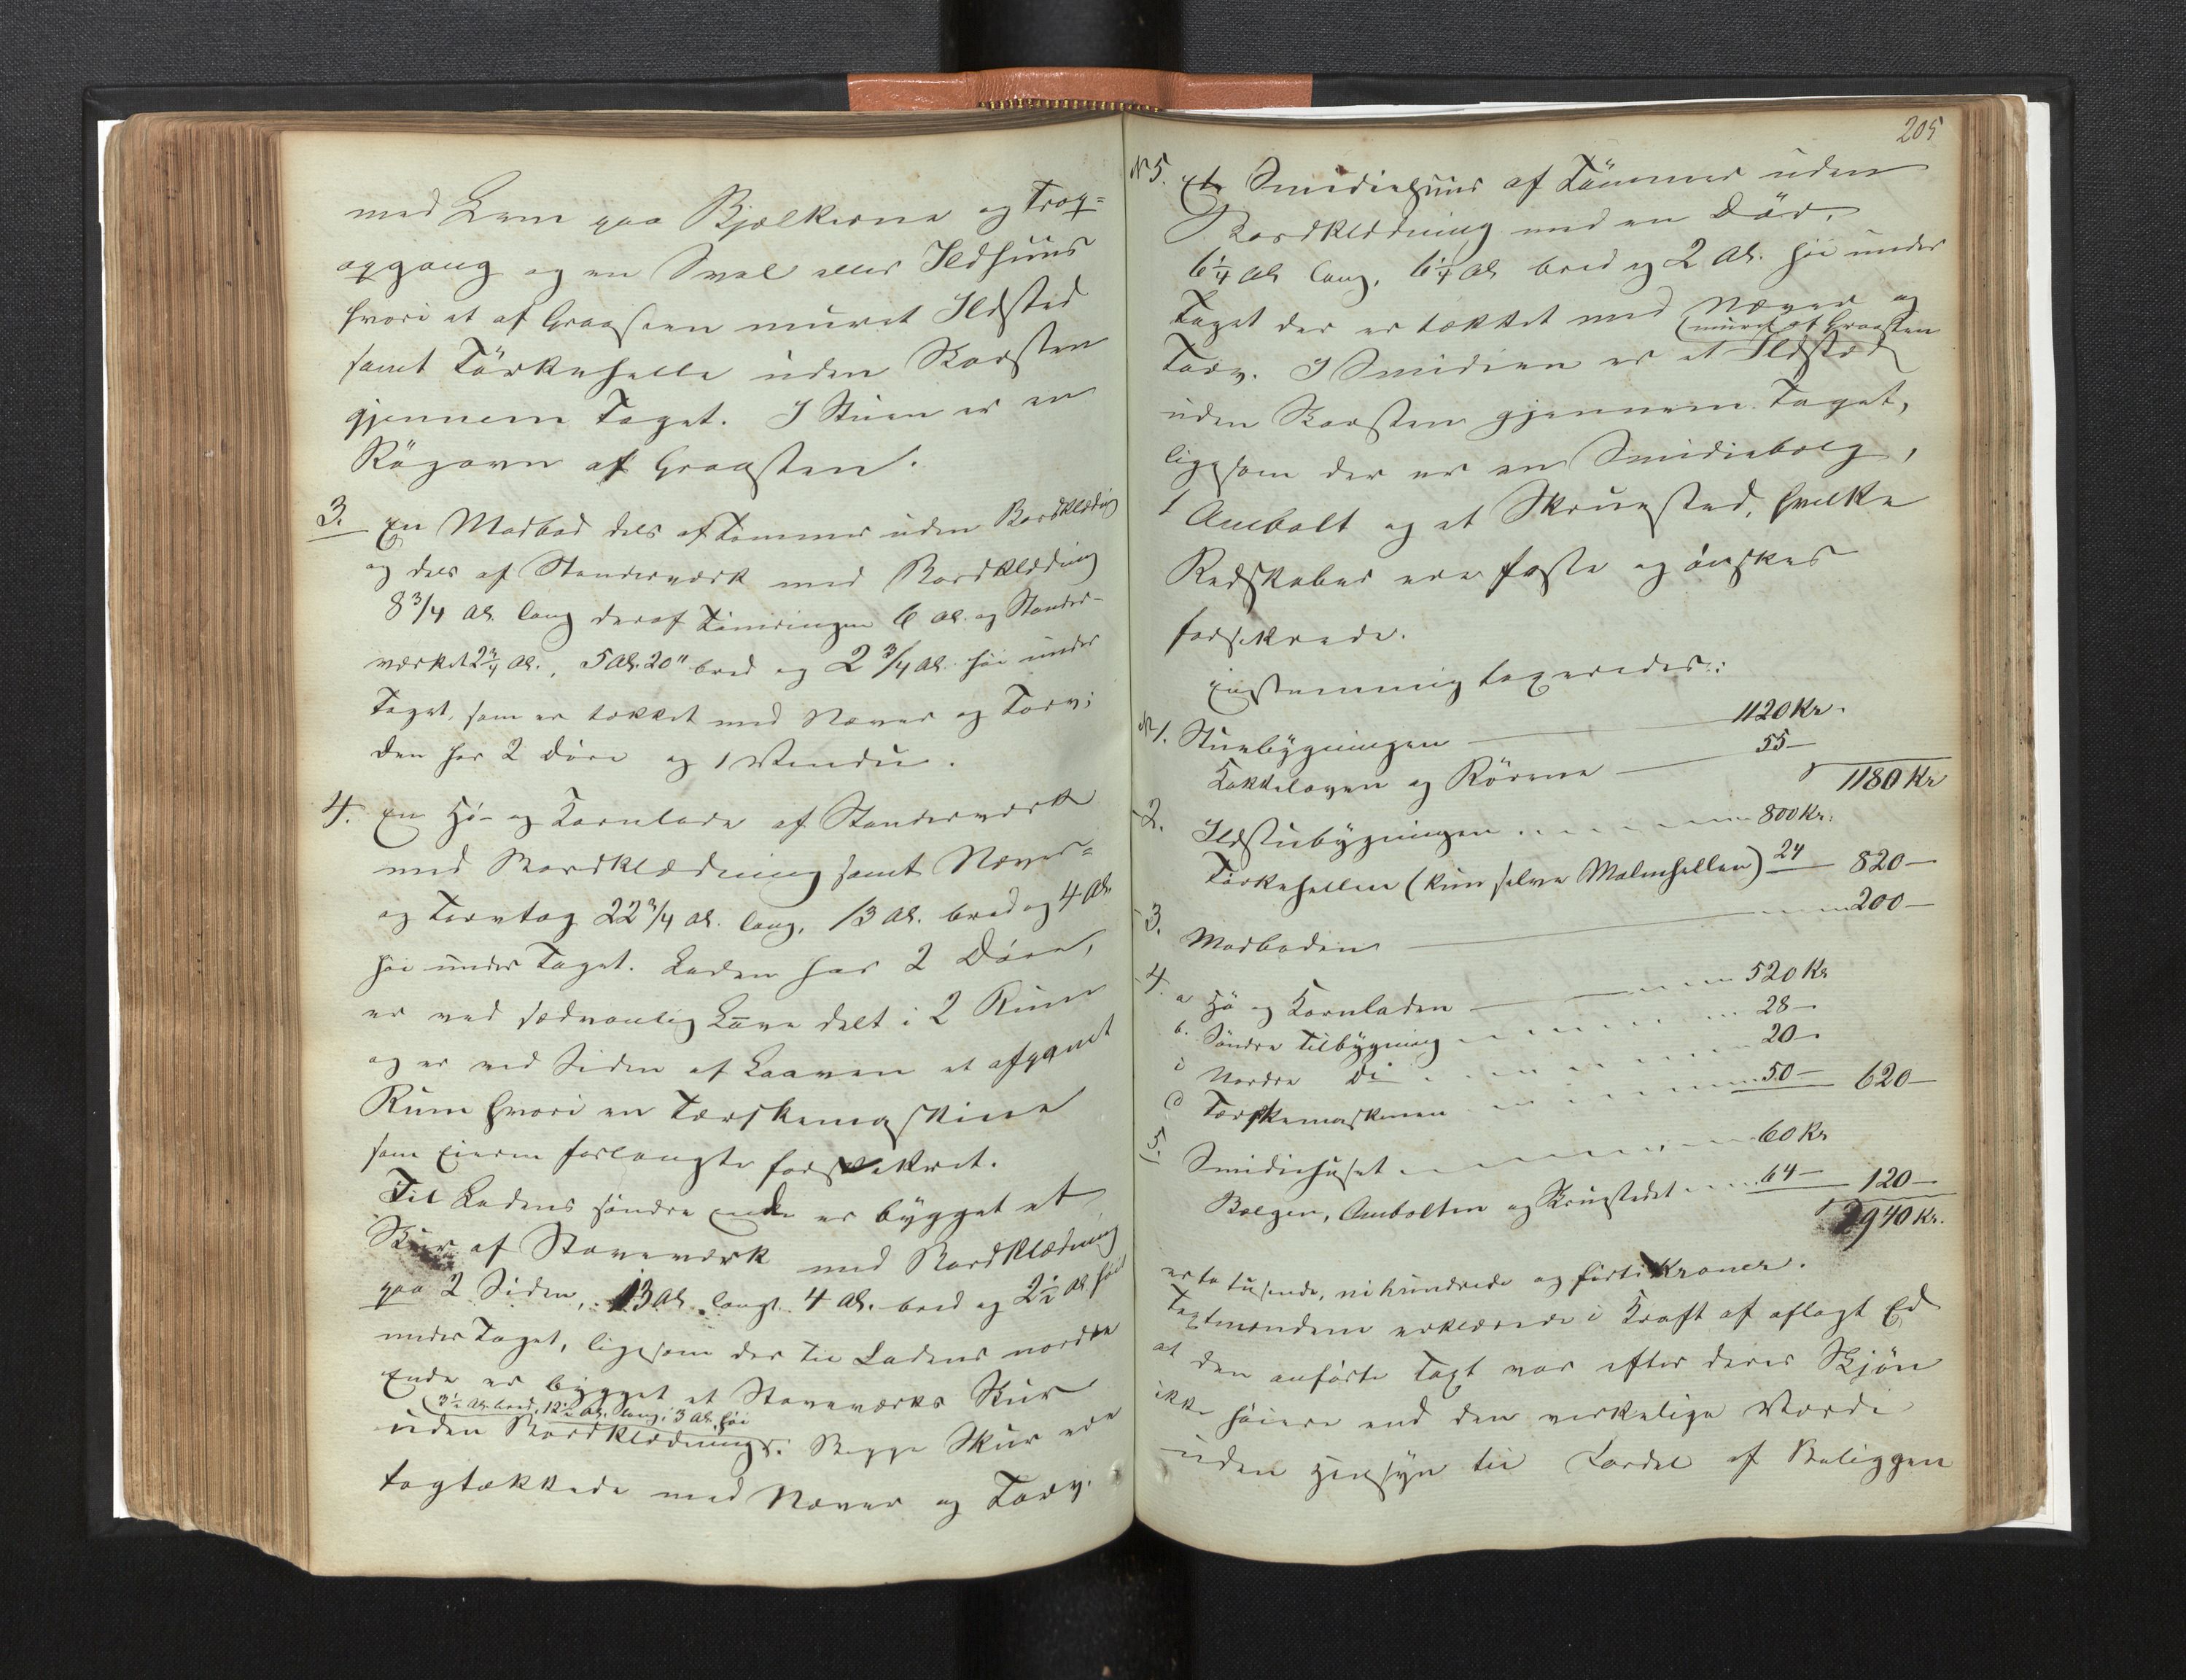 med Lem paa Bjælkerne og Trap-
opgang og en Sval eller Ildhuus
hvori et af Graasteen muret Ildsted
samt Törkehelle uden Skorsten
gjennem Taget. I Stuen er en
Rögovn af Graasten.
3. En Madbod dels af Tömmer uden Bordklædning
og dels af Standerværk med Bordklædning
8 3/4 Al. lang deraf Tömringen 6 Al. og Stander-
værket 2 3/4 Al., 5 Al. 20" bred og 2 3/4 Al. höi under
Taget, som er tækket med Næver og Torv;
den har 2 Döre og 1 Vindu.
4. En Hö- og Kornlade af Standerværk
med Bordklædning samt Næver-
og Torvtag 22 3/4 Al. lang, 13 Al. bred og 4 Al.
höi under Taget. Laden har 2 Döre,
er ved sædvanlig Laave delt i 2 Rum
og er ved Siden af Laaven et
Rum hvori en Tærskemaskine
som Eieren forlangte forsikret.
Til Ladens söndre Ende er bygget et
Skur af Stavværk med Bordklædning
paa 2 Sider, 13 Al. langt 4 Al. bred og 2 1/2 Al höit
under Taget, ligesom der til Ladens nordre
Ende er bygget et Staveværks Skur
(3 1/2 Al. bred, 12 1/2 Al. lang, 3 Al. höi
uden Bordklædning. Begge Skur ere
tagtækkede med Næver og Torv.
205
N 5. Et Smidiehuus af Tömmer uden
Bordklædning med en Dör.
6 1/4 Al lang, 6 1/4 Al bred og 2 Al. höi under
Taget der er tækket med Næver og
(muret af Graasten
Torv. I Smidien er et Ildsted
uden Skorsten gjennem Taget,
ligesom der er en Smidiebælg,
1 Ambolt og et Skruested, hvilke
Redskaber ere faste og önskes
forsikrede.
Enstemmig taxeredes:
N 1. Stuebygningen 1120 Kr.
Kakkelovn og Rörene 55 — 1180 Kr
-2. Ildstubygningen 800 Kr.
Törkehellen (kun selve Malmhellen) 24 — 820 —
-3. Madboden 200 —
-4. a Hö og Kornladen 520 Kr
b. Söndre Tilbygning 28 —
c Nordre Do 20 —
d Tærskemaskinen 50 — 620 —
5. Smidiehuset 60 Kr
Bælgen, Ambolten og Skruestedet 64 — 120 —
2940 Kr.
er to tusende, nihundrede og förti Kroner.
Taxtmændene erklærede i Kraft af aflagt Ed
at den anförte Taxt var efter deres Skjön
ikke höiere end den virkelige Værdi
uden Hensyn til Fordel af Beliggen